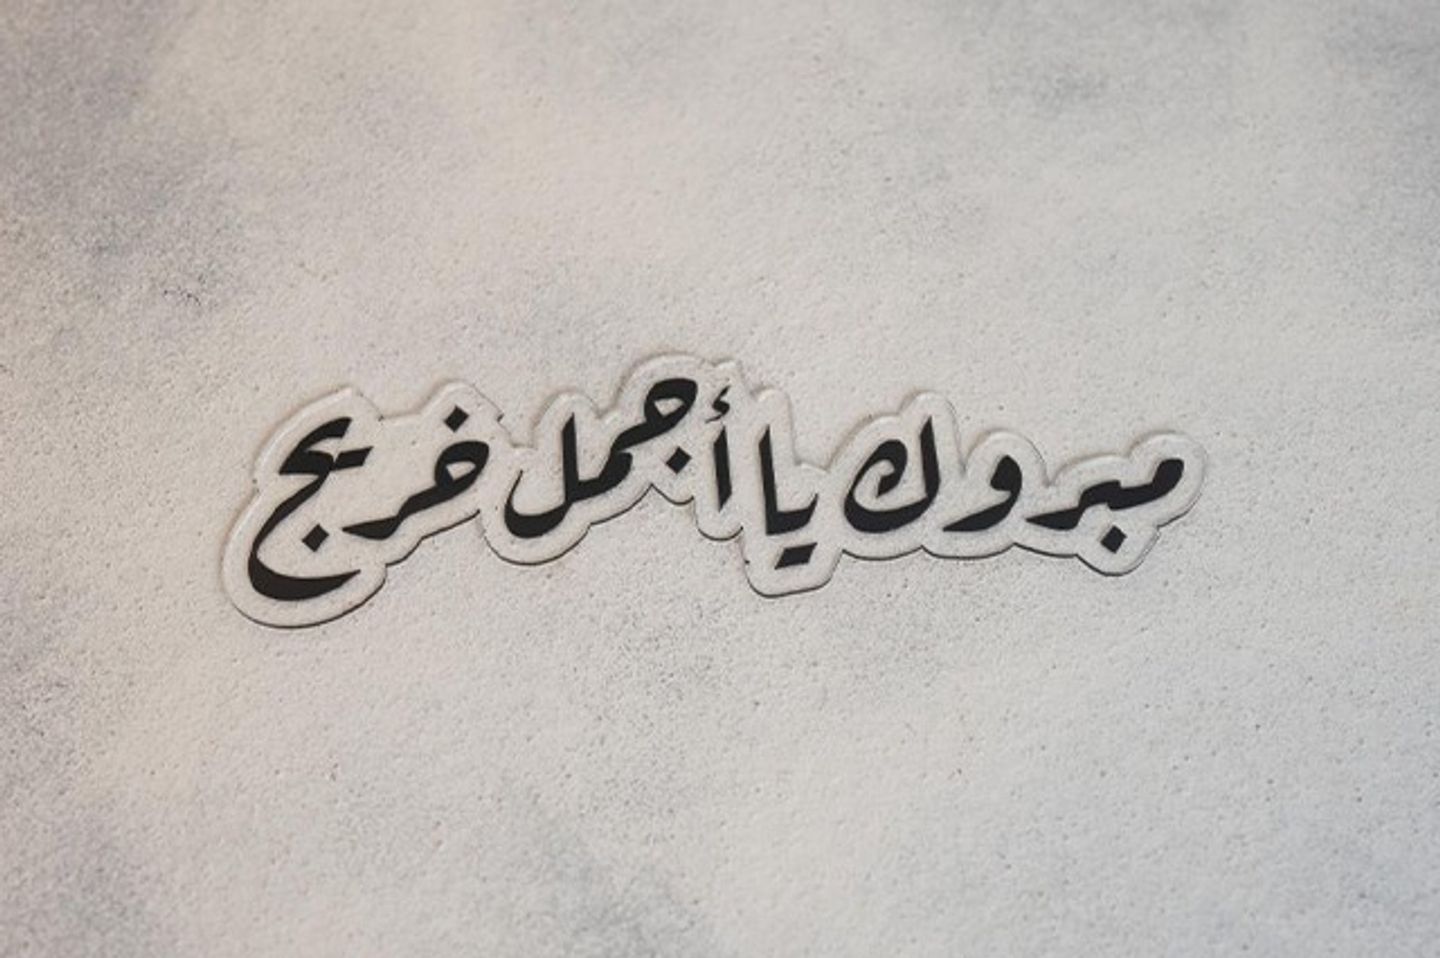 مبروك يا أجمل خريج